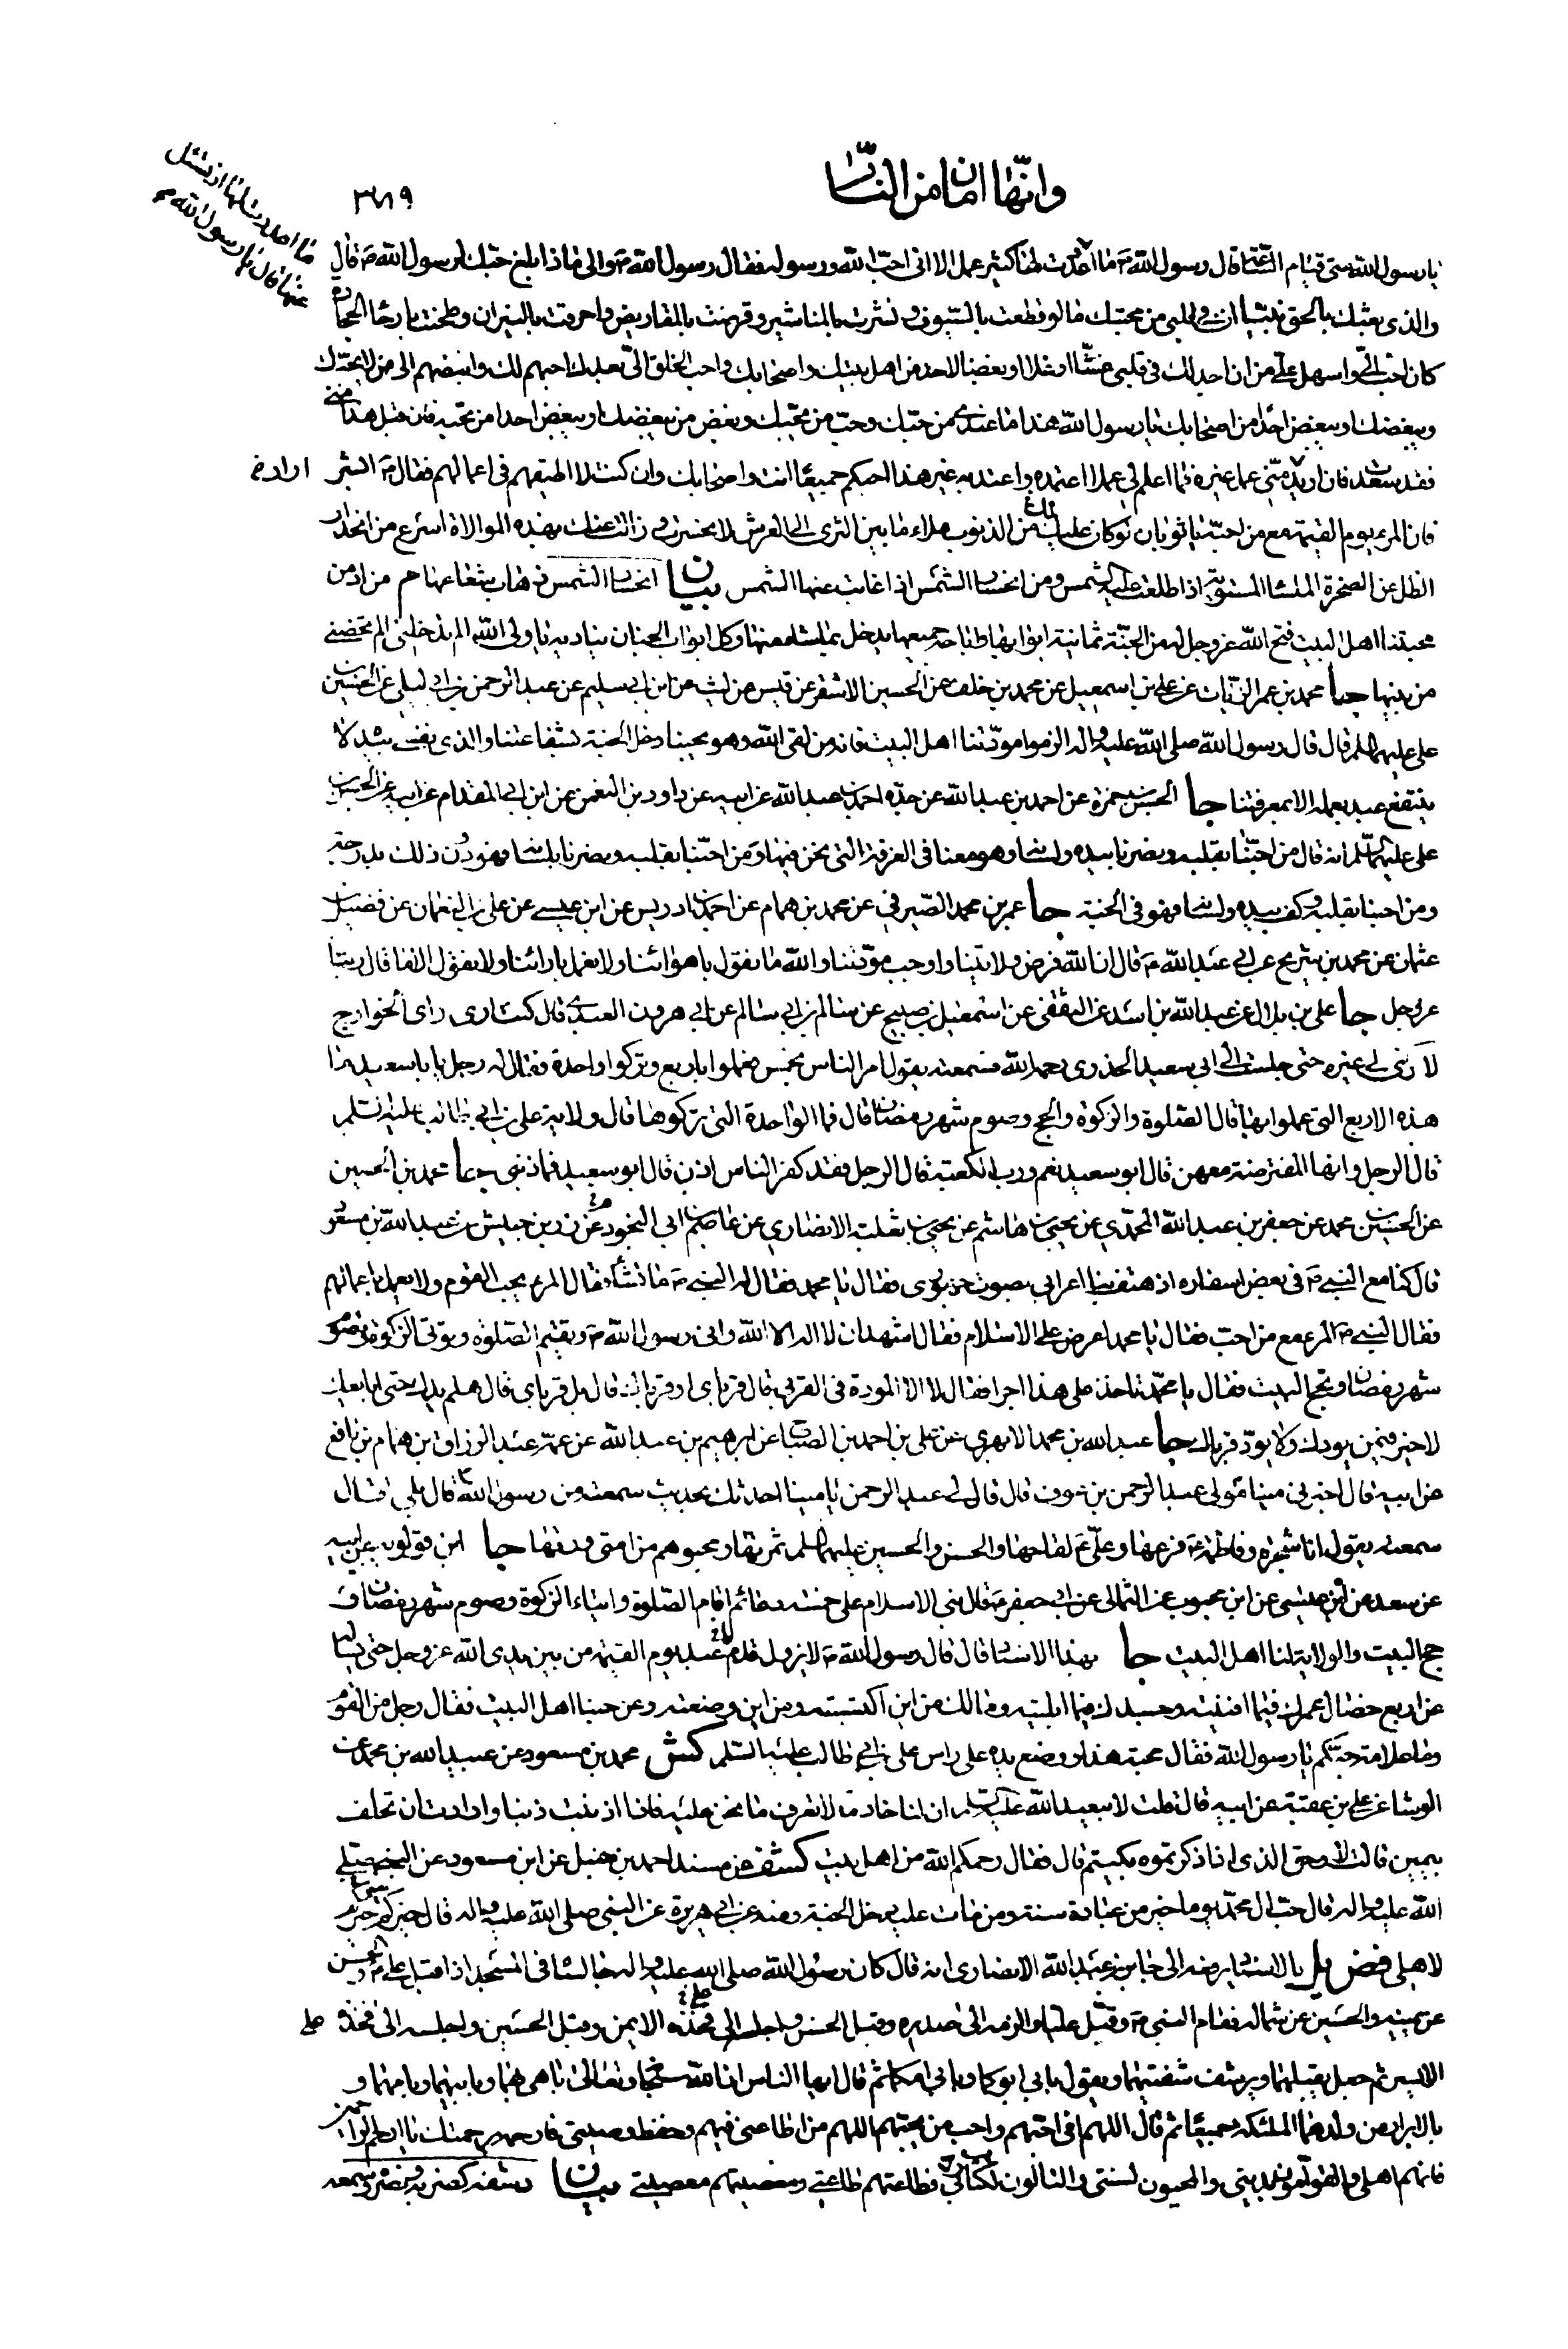 وانّها امان من النّار
٣٨٩
ما اعددت لها اذ تسئل
عنها قال يا رسول الله ص
يا رسول الله متى قيام السّاعة قال رسول الله ص ما اعددت لها كثير عمل الا انى احبّ الله ورسوله فقال رسول الله ص والى ماذا بلغ حبّك لرسول الله ص قال
والذى بعثك بالحق نبيّا ان فى قلبى من محبتك ما لو قطعت بالسّيوف ونشرت بالمناشير وقرضت بالمقاريض واحرقت بالنيران وطحنت بارحاء الحجارة
كان احبّ الىّ واسهل علىّ من ان اجد لك فى قلبى غشّا او غلّا او بغضا لاحد من اهل بيتك واصحابك واحب الخلق الىّ بعدك احبهم لك وابغضهم الى من لا يحبّك
ويبغضك او يبغض احدا من اصحابك يا رسول الله هذا ما عندى من حبّك وحبّ من يحبّك وبغض من يبغضك او يبغض احدا من تحبّه فان قبل هذا منى
فقد سعدت فان اريد منّى عمل غيره فما اعلم لى عملا اعتمده واعتد به غير هذا احبكم جميعا انت واصحابك وان كنت لا اطيقهم فى اعمالهم فقال ص ابشر
فان المرء يوم القيمة مع من احبّه يا ثوبان لو كان عليك من الذنوب ملاء ما بين الثرى الى العرش لانحسرت وزالت عنك بهذه الموالاة اسرع من انحدار
الظل عن الصخرة الملساء المستوية اذا طلعت عليه الشمس ومن انحسار الشمس اذا غابت عنها الشمس بيان انحسار الشمس ذهاب شعاعها م من ادمن
محبتنا اهل البيت فتح الله عز وجل له من الجنّة ثمانية ابوابها واباحه جميعها يدخل مما شاء منها وكل ابواب الجنان يناديه يا ولى الله الم تدخلنى الم تخصنى
من بينها جا محمد بن عمر الزيات عن على بن اسمعيل عن محمد بن خلف عن الحسين الاشقر عن قيس عن ليث عن ابن ابى سليم عن عبد الرحمن بن ابى ليلى عن الحسين بن
على عليهما السلم قال قال رسول الله صلى الله عليه واله الزموا مودّتنا اهل البيت فانه من لقى الله وهو يحبنا دخل الجنة بشفاعتنا والذى نفسى بيده لا
ينتفع عبد بعمله الا بمعرفتنا جا الحسن بن حمزة عن احمد بن عبد الله عن جدّه احمد بن عبد الله عن ابيه عن داود بن النعمن عن ابن ابى المقدام عن ابيه عن الحسن بن
على عليهما السّلم انه قال من احبّنا بقلبه ونصرنا بيده ولسانه فهو معنا فى الغرفة التى نحن فيها ومن احبّنا بقلبه ونصرنا بلسانه فهو دون ذلك بدرجة
ومن احبنا بقلبه وكف بيده ولسانه فهو فى الجنة جا عمر بن محمد الصّيرفى عن محمد بن همام عن احمد بن ادريس عن ابن عيسى عن على بن النعمان عن فضيل بن
عثمان عن محمد بن شريح عن ابى عبد الله ع قال ان الله فرض ولايتنا واوجب مودّتنا والله ما نقول باهوائنا ولا نعمل بارائنا ولا نقول الا ما قال ربنا
عز وجل جا على بن بلال عن عبد الله بن اسد عن الثقفى عن اسمعيل بن صبيح عن سالم بن ابى سالم عن ابى هرون العبدى قال كنت ارى راى الخوارج
لا راى لى غيره حتى جلست الى ابى سعيد الخدرى رحمه الله فسمعته يقول امر الناس بخمس فعملوا باربع وتركوا واحدة فقال له رجل يا ابا سعيد ما
هذه الاربع التى عملوا بها قال الصّلوة والزكوة والحج وصوم شهر رمضان قال فما الواحدة التى تركوها قال ولاية على بن ابى طالب عليه السّلم
قال الرجل وانها المفترضة معهن قال ابو سعيد نعم ورب الكعبة قال الرجل فقد كفر الناس اذن قال ابو سعيد فما ذنبى جا محمد بن الحسين
عن الحسين بن محمد عن جعفر بن عبد الله المحمدى عن يحيى بن هاشم عن يحيى بن ثعلبة الانصارى عن عاصم بن ابى النجود عن زر بن حبيش عن عبد الله بن مسعود
قال كنا مع النبى ص فى بعض اسفاره اذ هتف بنا اعرابى بصوت جهورى فقال يا محمد فقال له النبى ص ما تشاء فقال المرء يحب القوم ولا يعمل باعمالهم
فقال النبى ص المرء مع من احبّ فقال يا محمد اعرض على الاسلام فقال اشهد ان لا اله الا الله وانى رسول الله ص وتقيم الصّلوة وتؤتى الزكوة وتصوم
شهر رمضان وتحج البيت فقال يا محمّد تاخذ على هذا اجرا فقال لا الا المودة فى القربى قال قرباى او قرباك قال بل قرباى قال هلم يدك حتى ابايعك
لا خير فيمن يودك ولا يودّ قرباك جا عبد الله بن محمد الابهرى عن على بن احمد بن الصباح عن ابرهيم بن عبد الله عن عمّه عبد الرزاق بن همام بن نافع
عن ابيه قال اخبرنى مينا مولى عبد الرحمن بن عوف قال قال لى عبد الرحمن يا مينا احدثك بحديث سمعته من رسول الله ص قال بلى قال
سمعته يقول انا شجرة وفاطمة ع فرعها وعلىّ ع لقاحها والحسن والحسين عليهما السلم ثمرتها ومحبوهم من امتى ورقها جا ابن قولويه عن ابيه
عن سعد عن ابن عيسى عن ابن محبوب عن الثمالى عن ابى جعفر ع قال بنى الاسلام على خمسة دعائم اقام الصّلوة وايتاء الزكوة وصوم شهر رمضان و
حج البيت والولاية لنا اهل البيت جا بهذا الاسناد قال قال رسول الله ص لا يزول قدم عبد يوم القيمة من بين يدى الله عز وجل حتى يسأله
عن اربع خصال عمرك فيما افنيته وجسدك فيما ابليته ومالك من اين اكتسبته واين وضعته وعن حبنا اهل البيت فقال رجل من القوم
وما علامة حبّكم يا رسول الله فقال محبة هذا ووضع يده على راس على بن ابى طالب عليه السّلم كش محمد بن مسعود عن عبد الله بن محمد عن
الوشا عن على بن عقبة عن ابيه قال قلت لابى عبد الله عليه السّلم ان لنا خادمة لا تعرف ما نحن عليه فاذا اذنبت ذنبا وارادت ان تحلف
بيمين قالت لا وحق الذى اذا ذكرتموه بكيتم قال فقال رحمكم الله من اهل بيت كشف من مسند احمد بن حنبل عن ابن مسعود عن النبى صلى
الله عليه واله قال حبّ ال محمّد يوما خير من عبادة سنة ومن مات عليه دخل الجنة ومنه عن ابى هريرة عن النبى صلى الله عليه واله قال خيركم خيركم
لاهلى فض يل بالاسناد يرفعه الى جابر بن عبد الله الانصارى انه قال كان رسول الله صلى الله عليه واله جالسا فى المسجد اذ اقبل على ع والحسن
عن يمينه والحسين عن شماله فقام النبى ص وقبّل عليا والزمه الى صدره وقبل الحسن واجلسه الى فخذه الايمن وقبل الحسين واجلسه الى فخذه
الايسر ثم جعل يقبلهما ويرشف شفتيهما ويقول بابى ابوكما وبابى امكما ثم قال ايها الناس ان الله سبحانه وتعالى باهى بهما وبابيهما وبامهما و
بالابرار من ولدهما الملئكة جميعا ثم قال اللهم انى احبّهم واحب من يحبهم اللهم من اطاعنى فيهم وحفظ وصيتى فارحمه برحمتك يا ارحم الراحمين
فانهم اهلى والقوامون بدينى والمحيون لسنتى والتالون لكتاب ربى فطاعتهم طاعتى ومعصيتهم معصيتى بيان رشفه كنصره وضربه وسمعه